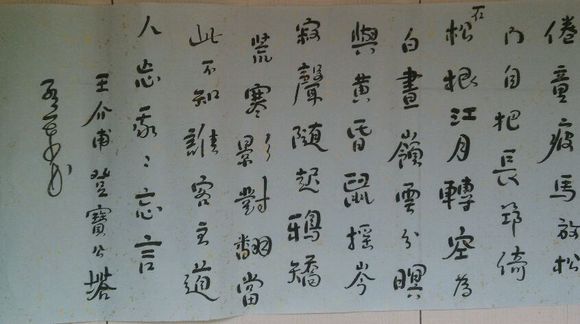 倦童疲馬放松
门自把長筇倚
石松根江月轉空為
白晝嶺雲分暝
與黃昏鼠搖岑
寂聲隨起鴉矯
荒寒影對翻當
此不知誰客主道
人忘我々忘言
王介甫登寶公塔